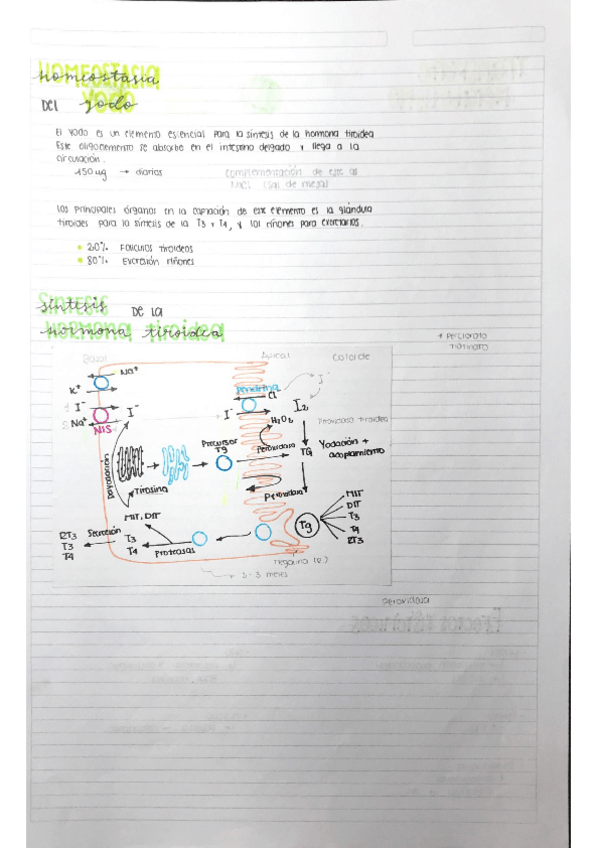 Homeostasia
del yodo
El yodo es un elemento esencial para la síntesis de la hormona tiroidea
Este oligoelemento se absorbe en el intestino delgado y llega a la
circulación.
150 ug → diarios
complementación de este al
NaCl (sal de mesa)
Los principales órganos en la captación de este elemento es la glándula
tiroides para la síntesis de la T3 y T4, y los riñones para excretarlos.
20% Folículos tiroideos
80% Excreción riñones
síntesis de la
hormona tiroidea
Perclorato
Tiocinato
Basal
Apical
Coloide
Na+
K+
Pendrina
Cl-
I-
I-
I-
I-
I2
Na+
NIS
H2O2
Peroxidasa tiroidea
Precursor
Tg
Peroxidasa
TG
Yodación +
acoplamiento
Deyodación
Tirosina
Peroxidasa
MIT, DIT
Tg
MIT
DIT
T3
T4
RT3
RT3
T3
T4
Secreción
T3
T4
Proteasas
megalina (R.)
2-3 meses
Peroxidasa